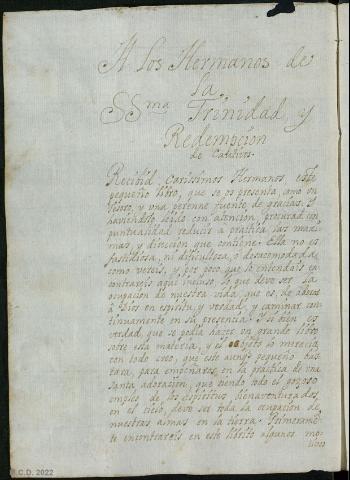 A los Hermanos de
la
SSma Trinidad y
Redempcion
de Cautivos.
Recibid, Carissimos Hermanos, este
pequeño libro, que se os presenta, como un
tesoro, y una perenne fuente de gracias. Y
haviendolo leido con atencion, procurad con
puntualidad reducir a practica las maxi-
mas, y direccion que contiene. Ella no es
fastidiosa, ni dificultosa, o desacomodada
como vereis, y por poco que lo intendais en-
contrareis aqui incluso lo que deve ser la
ocupacion de nuestra vida, que es, de adorar
a Dios en espiritu, y verdad, y caminar con-
tinuamente en su presencia. Y si bien es
verdad, que se podia hazer un grande libro
sobre esta materia, y el objeto lo merecia
con todo creo, que este aunq pequeño bas-
tara, para empeñaros en la practica de una
santa adoracion, que siendo todo el gozoso
empleo de los espiritus bienaventurados
en el cielo, deve ser toda la ocupacion de
nuestras almas en la tierra. Primeramẽ
te encontrareis en este librito algunos mo-
tivos
R.C.D. 2022